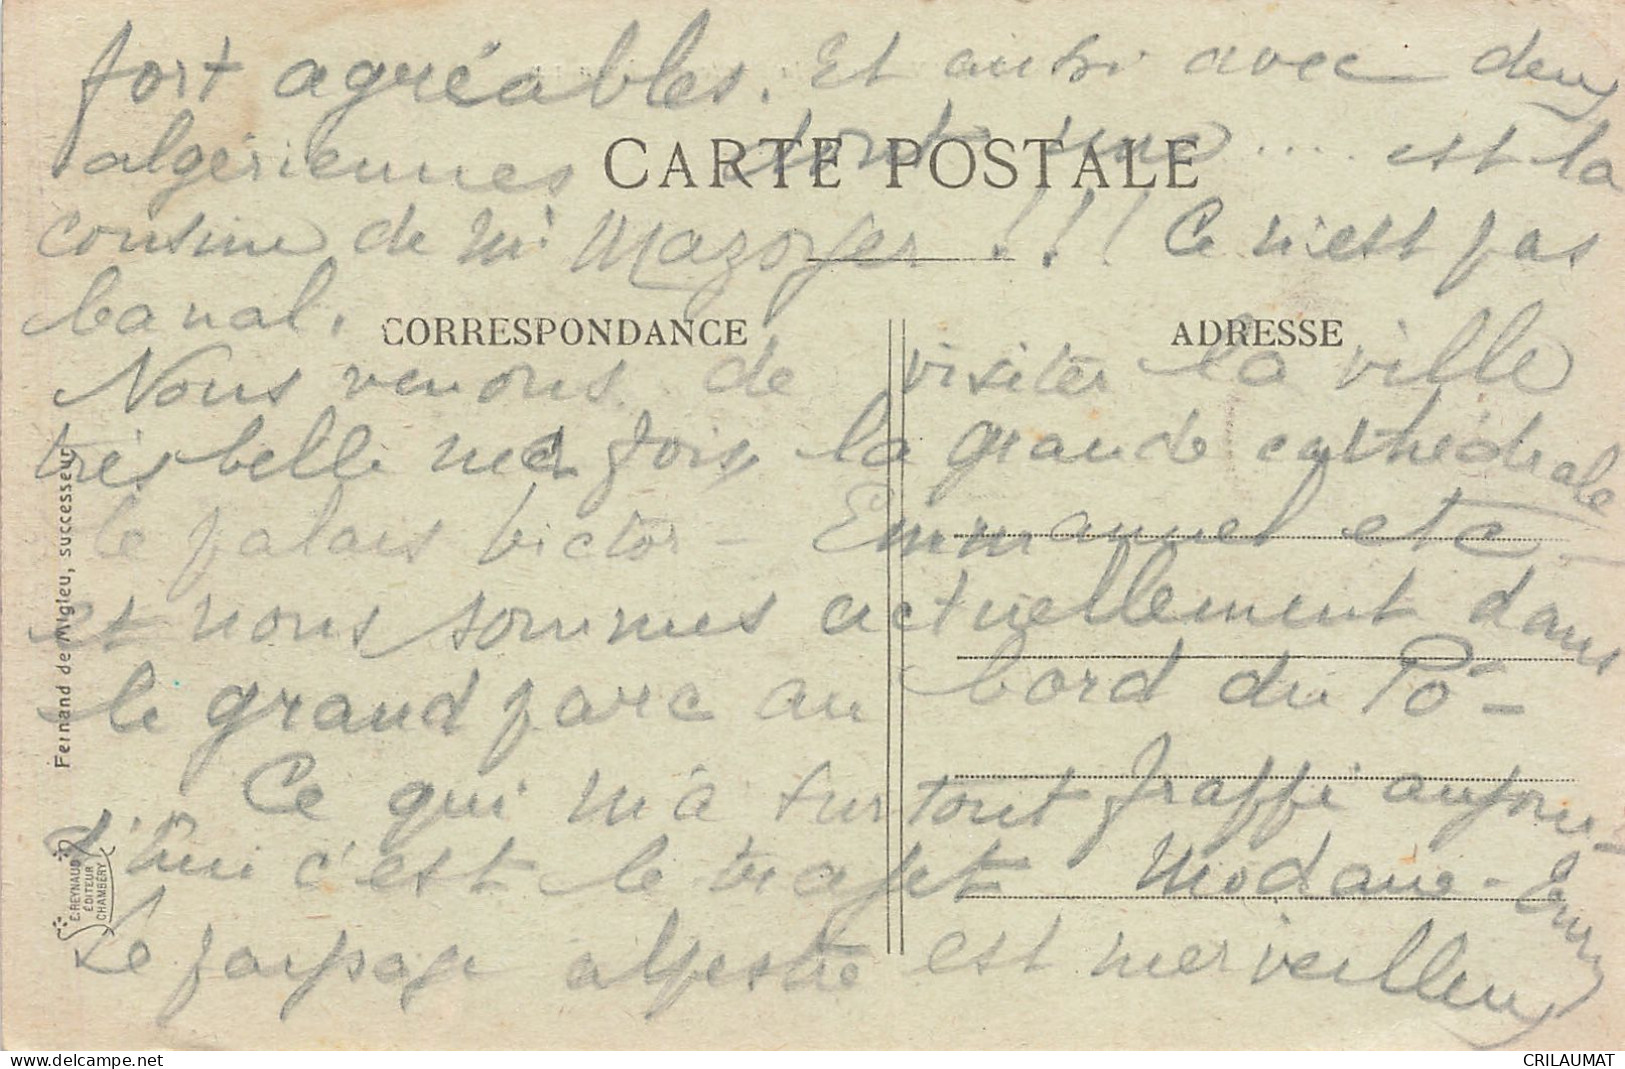 fort agréables. Et aussi avec deux
algériennes dont une .... est la
CARTE POSTALE
cousine de Mr Mazoyer !!! Ce n'est pas
banal.
CORRESPONDANCE
ADRESSE
Nous venons de visiter la ville
très belle ma fois, la grande cathédrale
le palais Victor - Emmanuel etc -
et nous sommes actuellement dans
le grand parc au bord du Pô -
Ce qui m'a surtout frappé aujour-
d'hui c'est le trajet Modane -
Le paysage alpestre est merveilleux
Fernand de Migieu, successeur
E. REYNAUD
ÉDITEUR
CHAMBÉRY
www.delcampe.net
CRILAUMAT